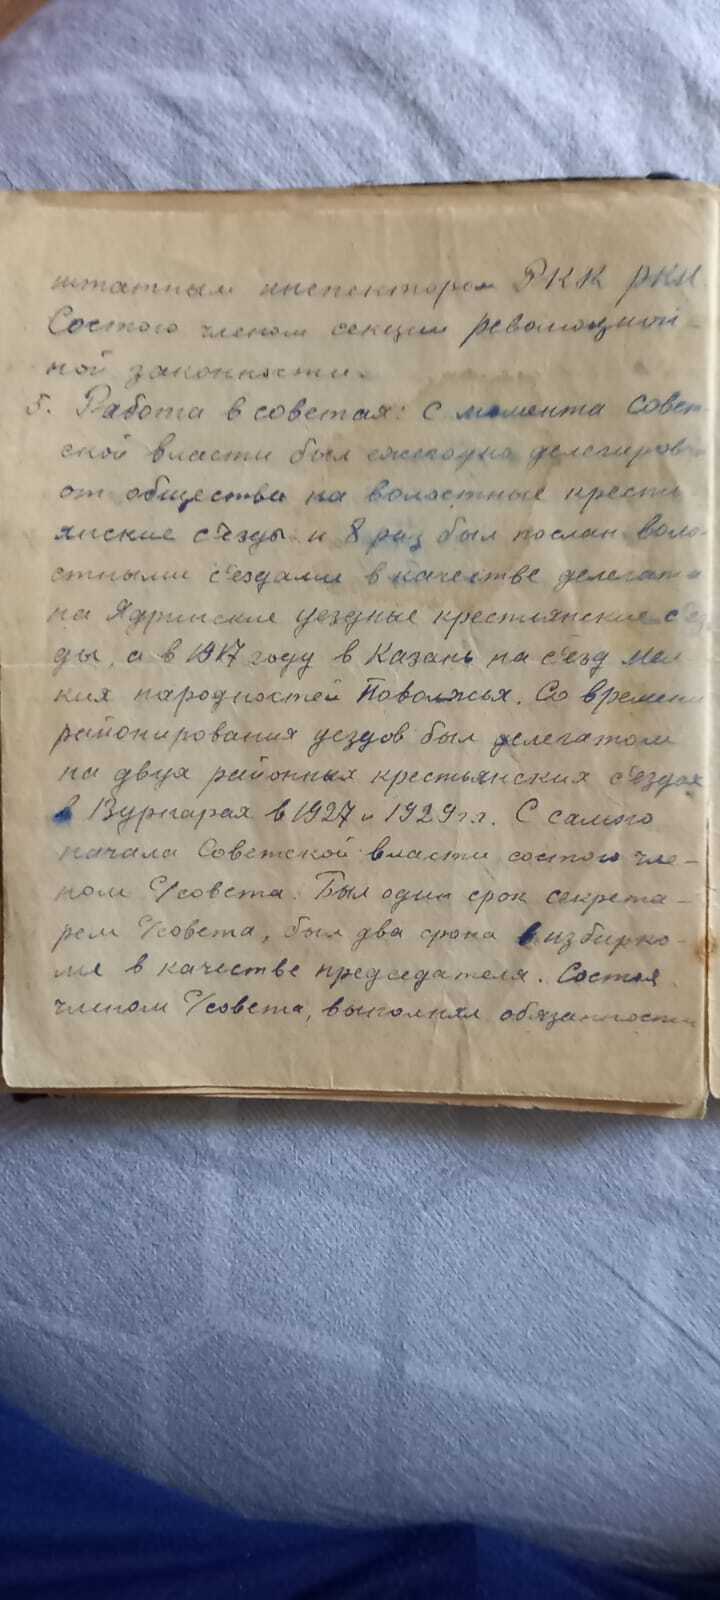 штатным инспектором РКК РКИ.
Состою членом секции революцион-
ной законности.
5. Работа в советах: С момента Совет-
ской власти был ежегодно делегирован
от общества на волостные кресть
янские с'езды и 8 раз был послан воло-
стными с'ездами в качестве делегата
на Ядринские уездные крестьянские с'ез
ды, а в 1917 году в Казань на с'езд мел-
ких народностей Поволжья. Со времени
районирования уездов был делегатом
на двух районных крестьянских с'ездах
в Вурнарах в 1927 и 1929 г.г. С самого
начала Советской власти состою чле-
ном С/совета. Был один срок секрета-
рем С/совета, был два срока в избирко-
ме в качестве председателя. Состоя
членом С/совета, выполнял обязанности